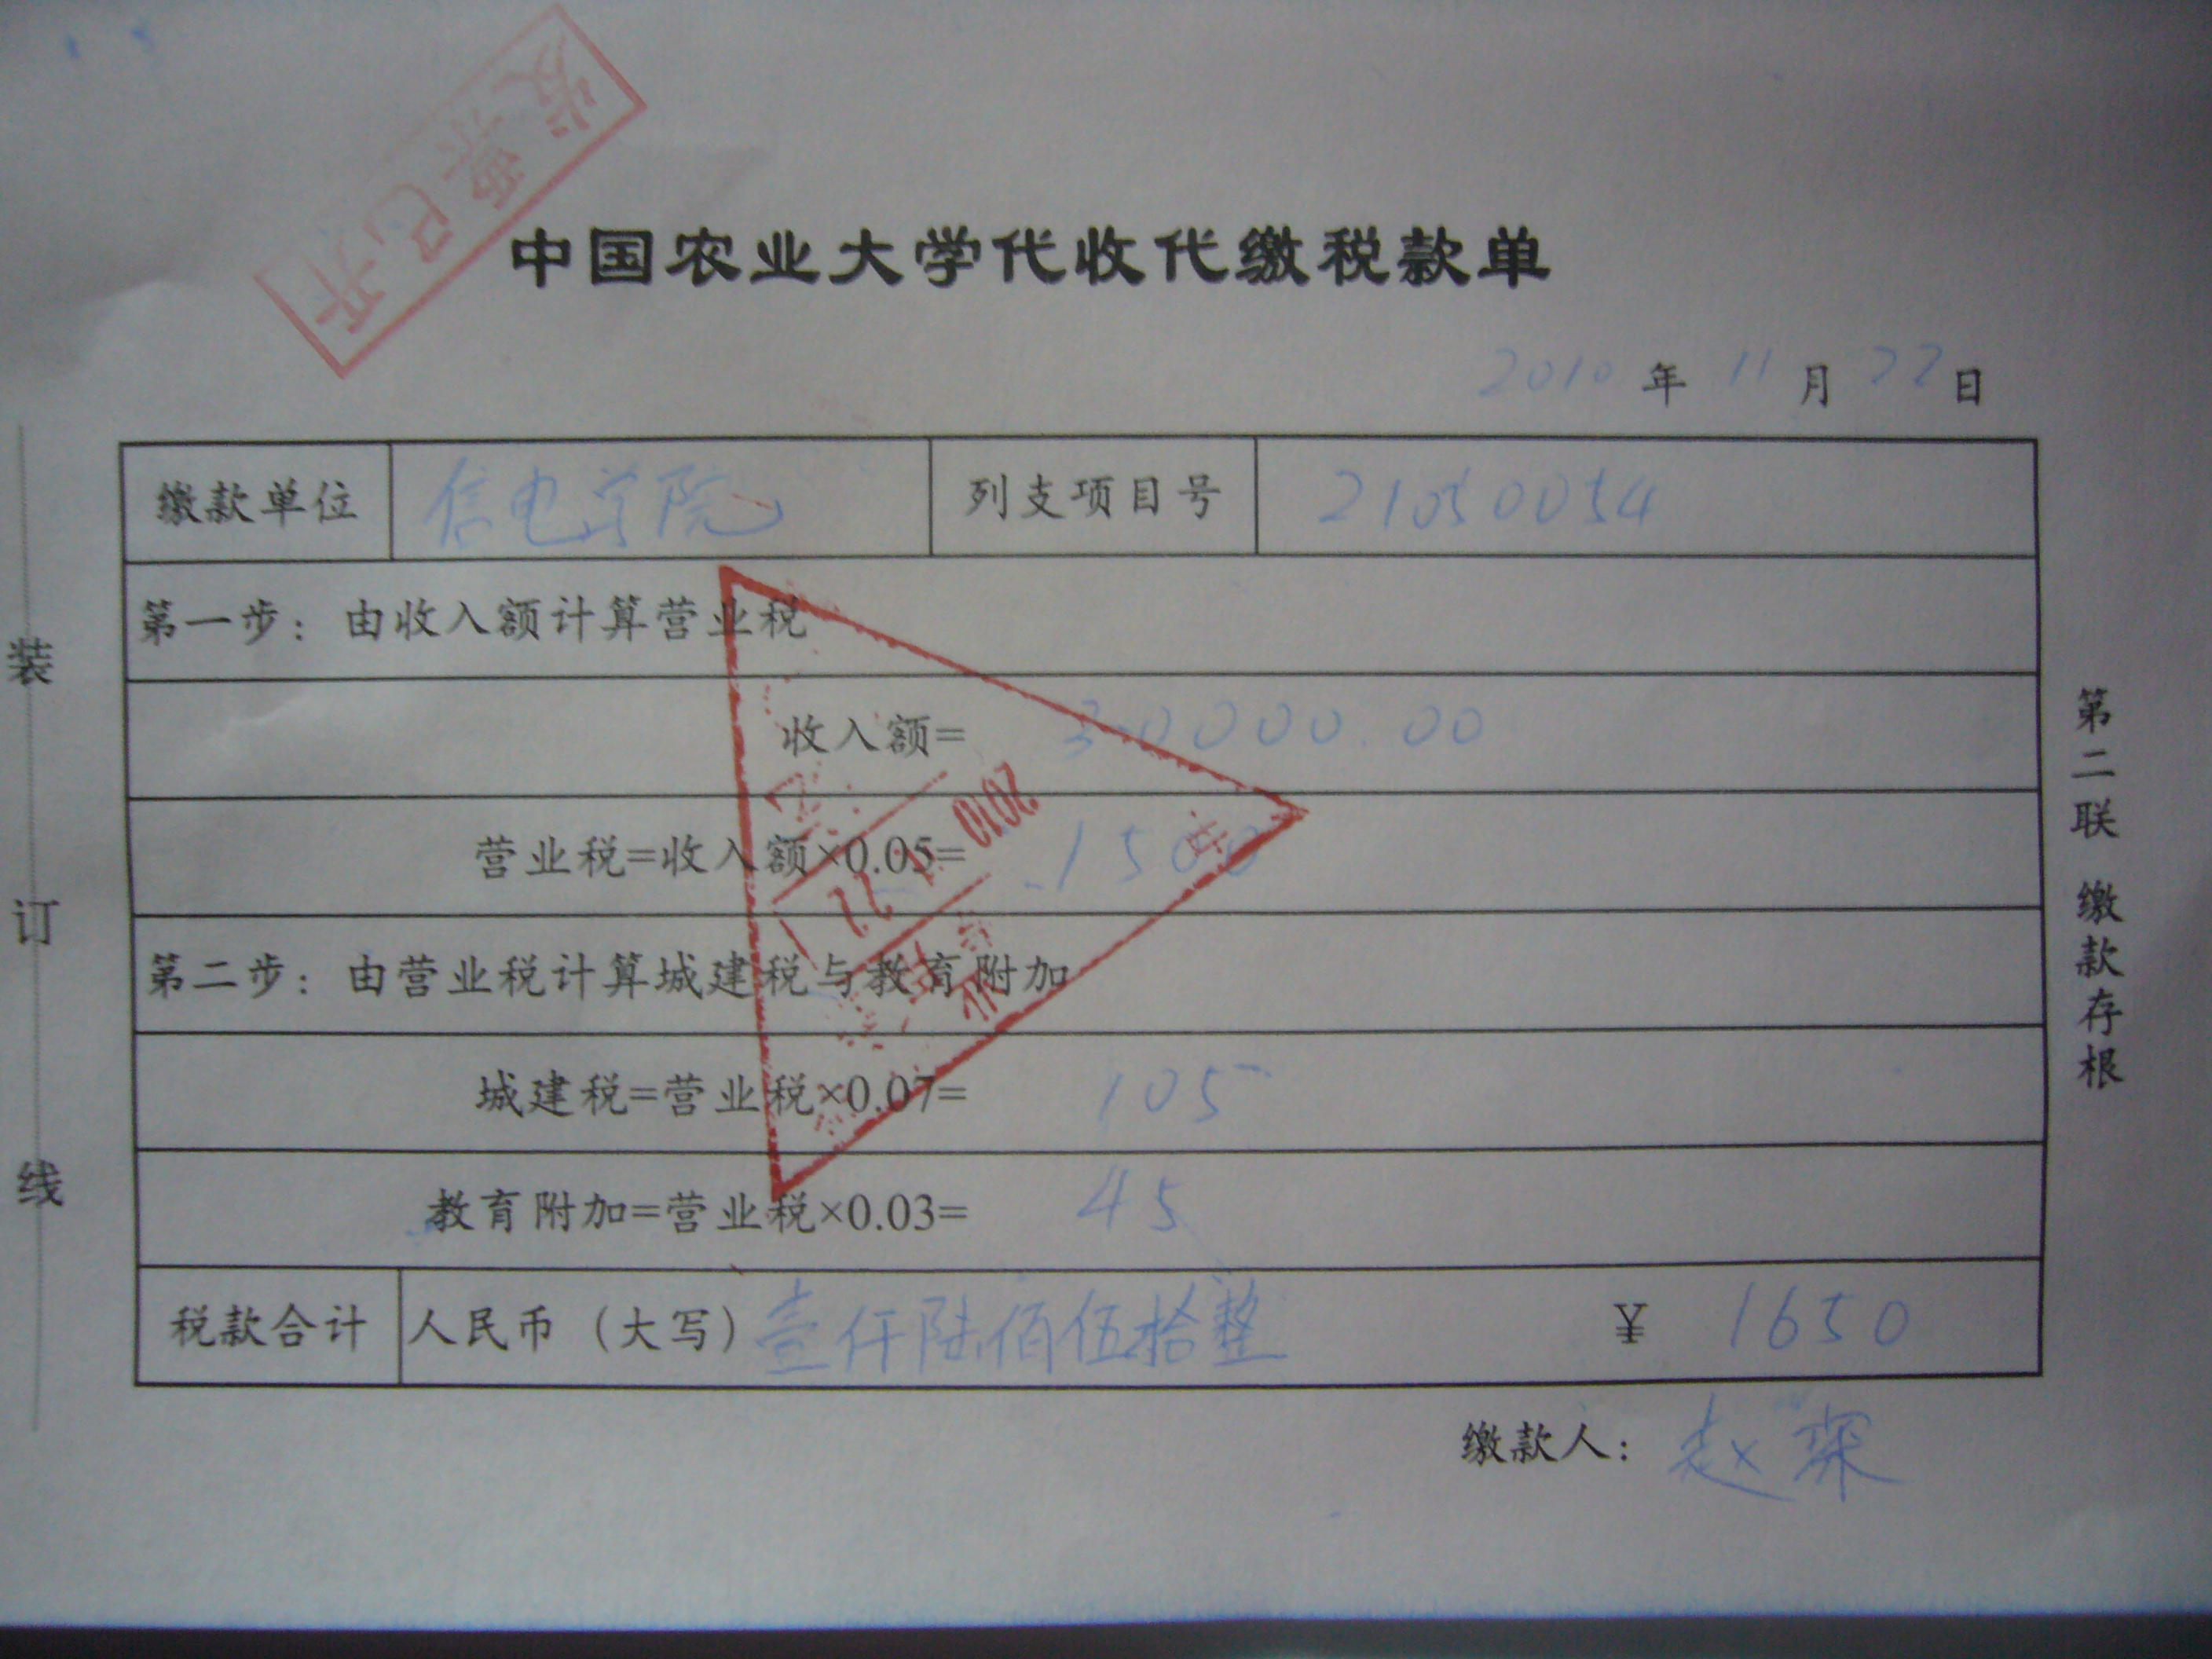 发票已开
中国农业大学代收代缴税款单
2010 年 11 月 22 日
缴款单位 信电学院 列支项目号 21050054
第一步：由收入额计算营业税
收入额= 30000.00
营业税=收入额×0.05= 1500
第二步：由营业税计算城建税与教育附加
城建税=营业税×0.07= 105
教育附加=营业税×0.03= 45
税款合计 人民币（大写）壹仟陆佰伍拾整 ¥ 1650
缴款人：赵琛
装订线
第二联 缴款存根
2010 11 22